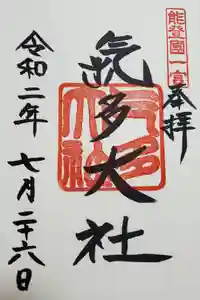 能登國一宮
奉拝
氣多大社
令和二年 七月二十六日